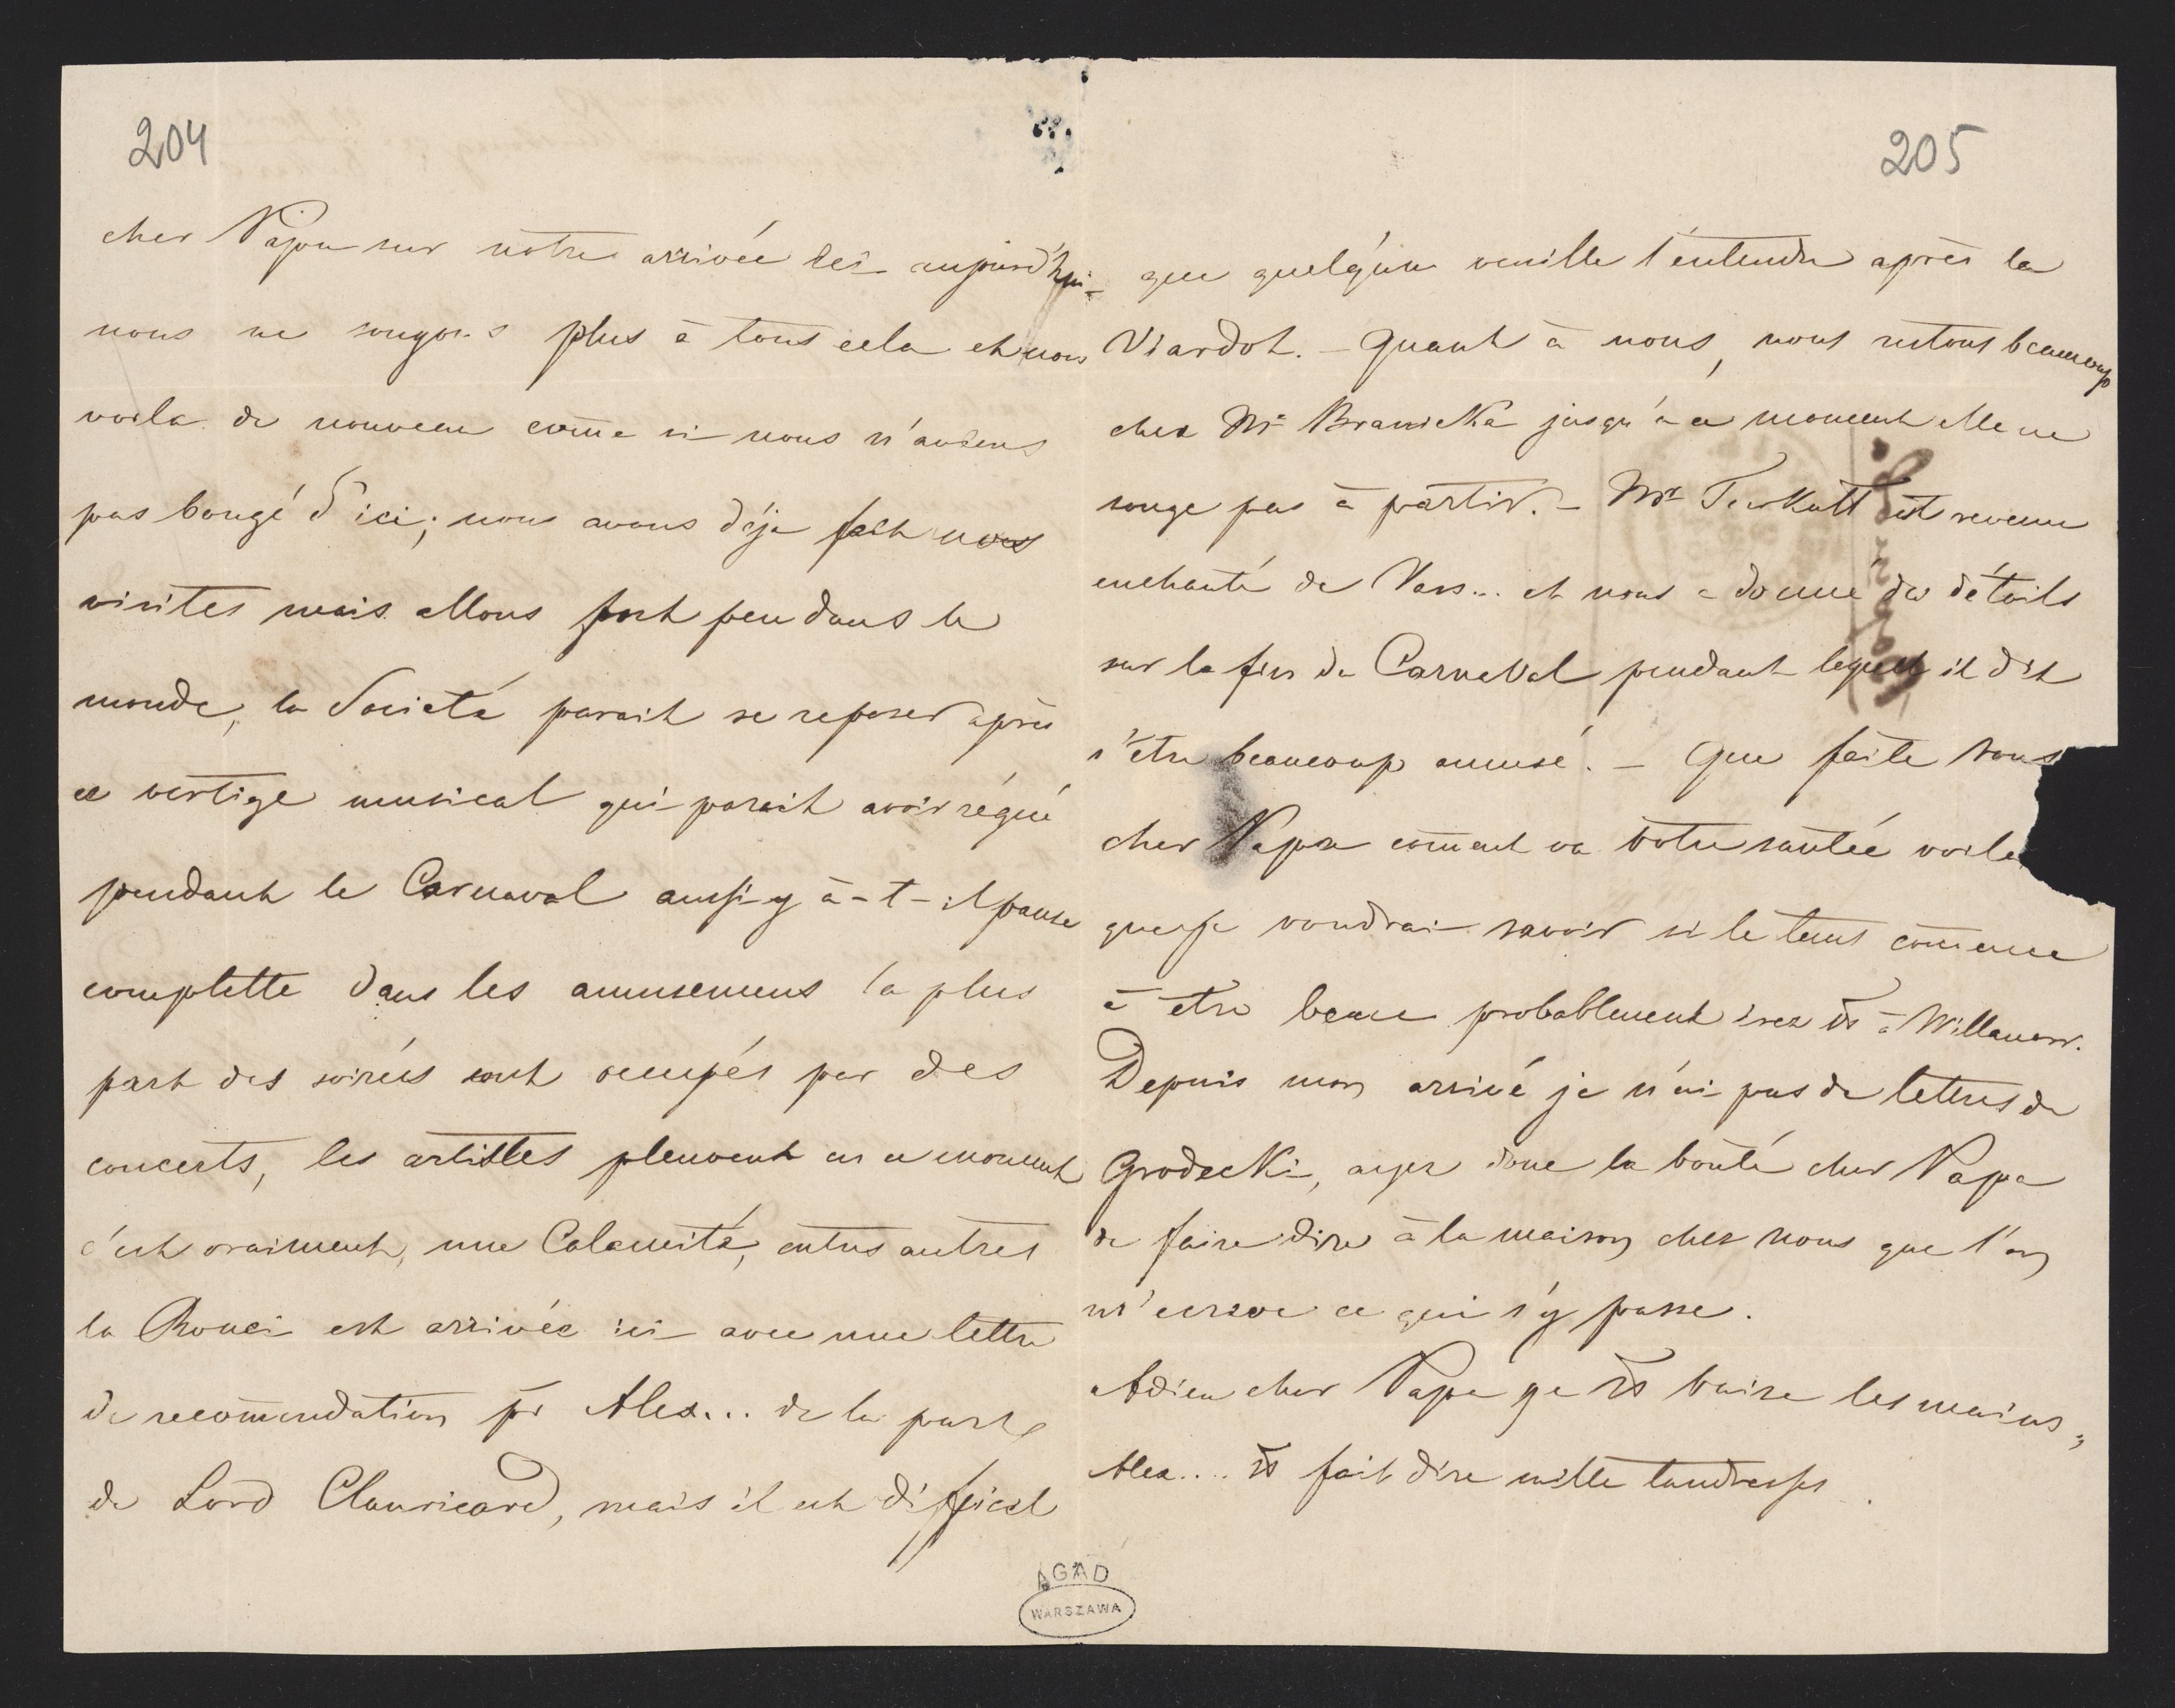 204
cher Papa sur notre arrivée ici aujourd'hui
nous ne songons plus à tous cela et nous
voila de nouveau com̄e si nous n'avions
pas bougé d'ici; nous avons déja fait nos
visites mais allons fort peu dans le
monde, la Societé parait se reposer après
ce vertige musical qui parait avoir régné
pendant le Carnaval aussi y à-t-il pause
complette dans les amusemens la plus
part des soirées sont occupés par des
concerts, les artistes pleuvent en ce moment
c'est vraiment, une Calamité, entres autres
la Ronci est arrivée ici avec une lettre
de recom̄endation pr Alex... de la part
de Lord Clanricard, mais il est difficil
205
que quelqu'un veuille l'entendre après la
Viardot. - Quant à nous, nous restons beaucoup
chez Me Branicka jusqu'à ce moment elle ne
songe pas à partir. - Mr Turkutt est revenu
enchanté de Vars... et nous a donné des détails
sur la fin de Carneval pendant lequel il dit
s'être beaucoup amusé. - Que faite vous
cher Papa com̄ent va votre santée voila
que je voudrai savoir si le tems com̄ence
à être beau probablement irez vs à Willanow.
Depuis mon arrivé je n'ai pas de lettres de
Grodecki, ayez donc la bonté cher Papa
de faire dire à la maison chez nous que l'on
m'ecrive ce qui s'y passe.
Adieu cher Papa je vs baise les mains,
Alex.... vs fait dire mille tendresses.
AGAD
WARSZAWA